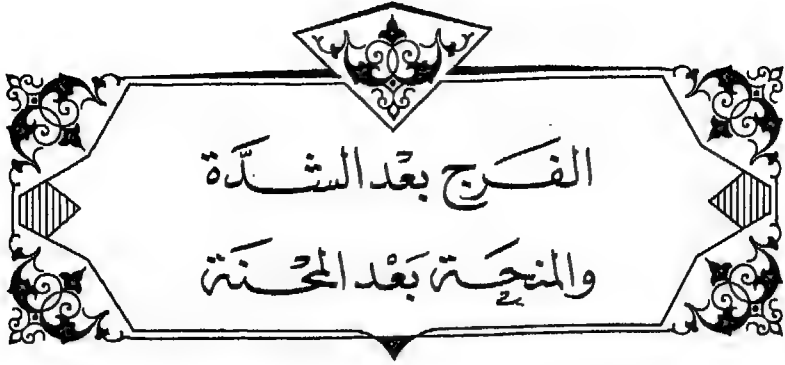 الفَرَج بعْد الشدَّة
والمنحَة بَعْد المحْنَة